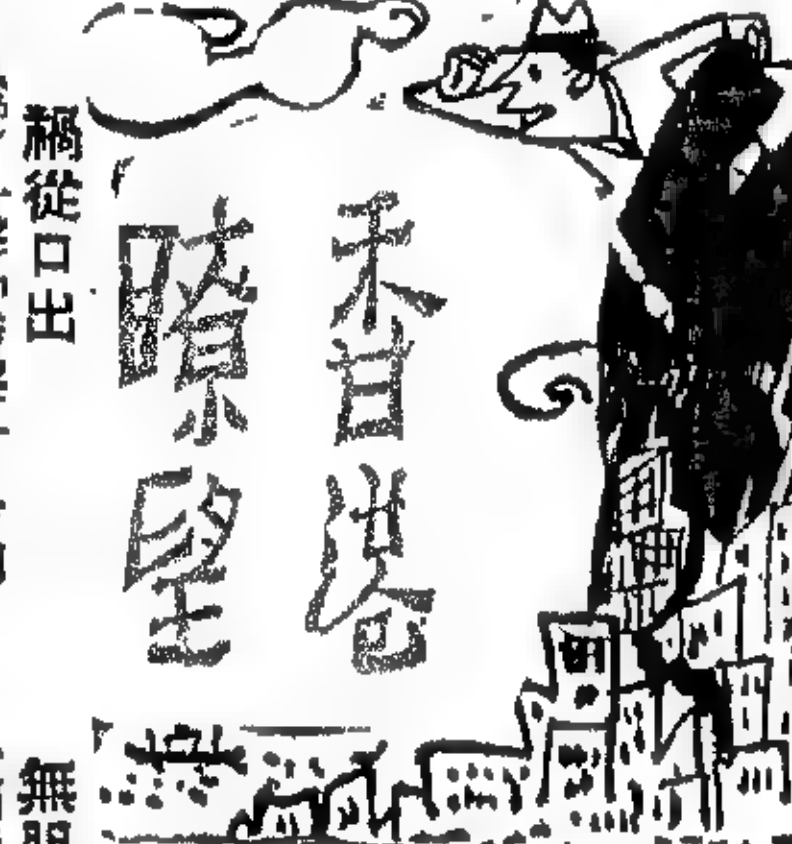 香港
瞭望
禍從口出
無